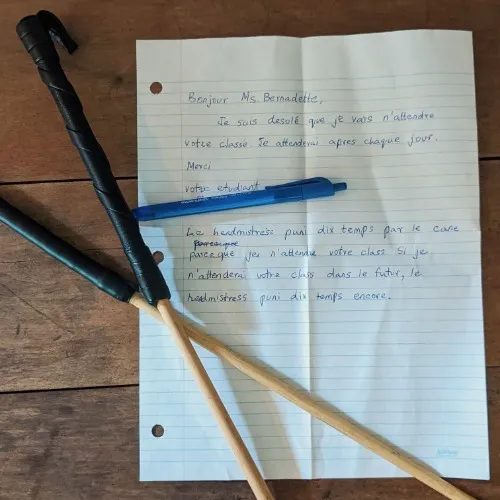 Bonjour Ms. Bernadette,
Je suis desolé que je vais n'attendre
votre classe Je attenderai apres chaque jour.
Merci
votre etudiant
Le headmistress puni dix temps par le cane
parceque je n'attendre votre class Si je
n'attenderai votre class dans le futur, le
headmistress puni dix temps encore.